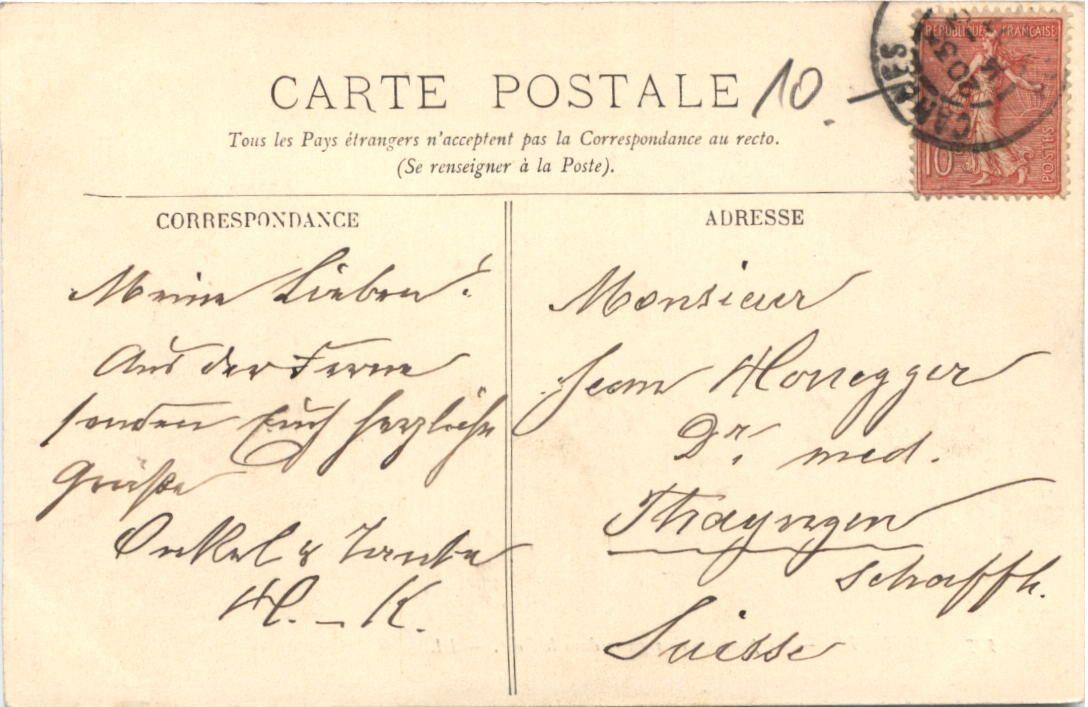 CARTE POSTALE
10.
Tous les Pays étrangers n'acceptent pas la Correspondance au recto.
(Se renseigner à la Poste).
CORRESPONDANCE
Meine Lieben!
Aus der Ferne
senden Euch herzliche
Grüße
Onkel & Tante
H. - K.
ADRESSE
Monsieur
Jean Honegger
Dr. med.
Thayngen
Schaffh.
Suisse
REPUBLIQUE FRANÇAISE
10
POSTES
CANNES